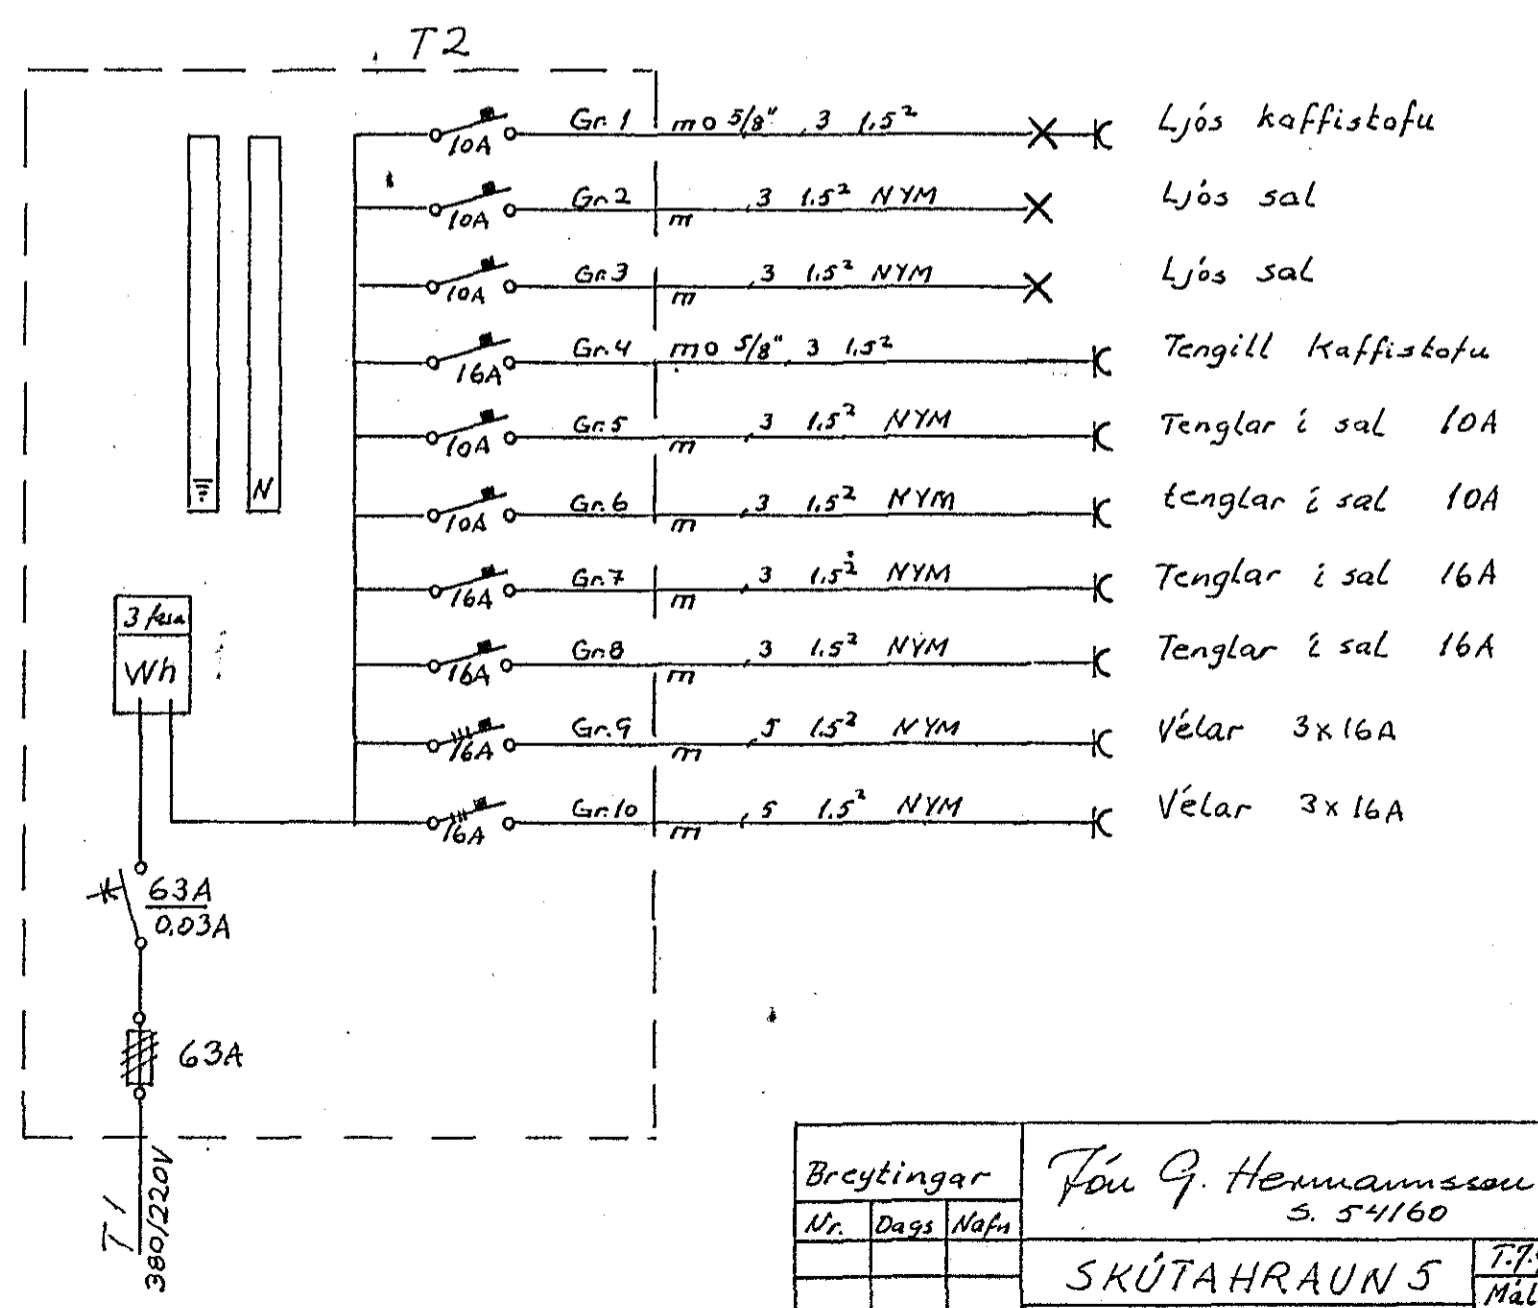 T2
Gr. 1 m o 5/8" 3 1.5² Ljós kaffistofu
10A
Gr. 2 m 3 1.5² NYM Ljós sal
10A
Gr. 3 m 3 1.5² NYM Ljós sal
10A
Gr. 4 m o 5/8" 3 1.5² Tengill kaffistofu
16A
Gr. 5 m 3 1.5² NYM Tenglar í sal 10A
10A
N
Gr. 6 m 3 1.5² NYM tenglar í sal 10A
10A
Gr. 7 m 3 1.5² NYM Tenglar í sal 16A
16A
3 fasa
Wh
Gr. 8 m 3 1.5² NYM Tenglar í sal 16A
16A
Gr. 9 m 5 1.5² NYM Vélar 3x16A
16A
Gr. 10 m 5 1.5² NYM Vélar 3x16A
16A
63A
0.03A
63A
T1
380/220V
Breytingar
Nr. Dags Nafn
Jón G. Hermannsson
S. 54160
SKÚTAHRAUN 5